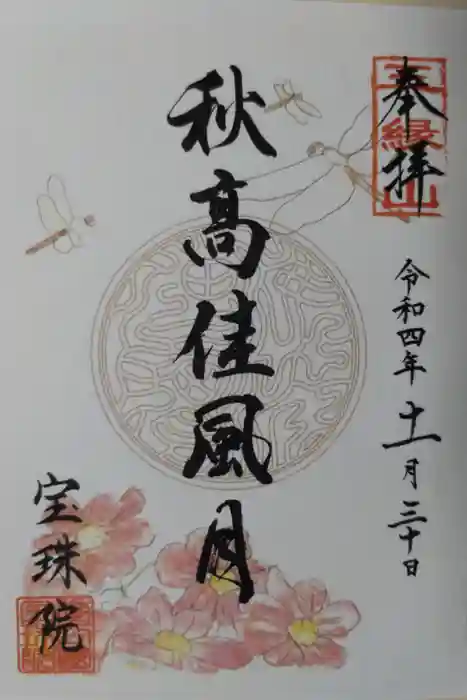 奉拝
令和四年十一月三十日
秋高佳風月
宝珠院